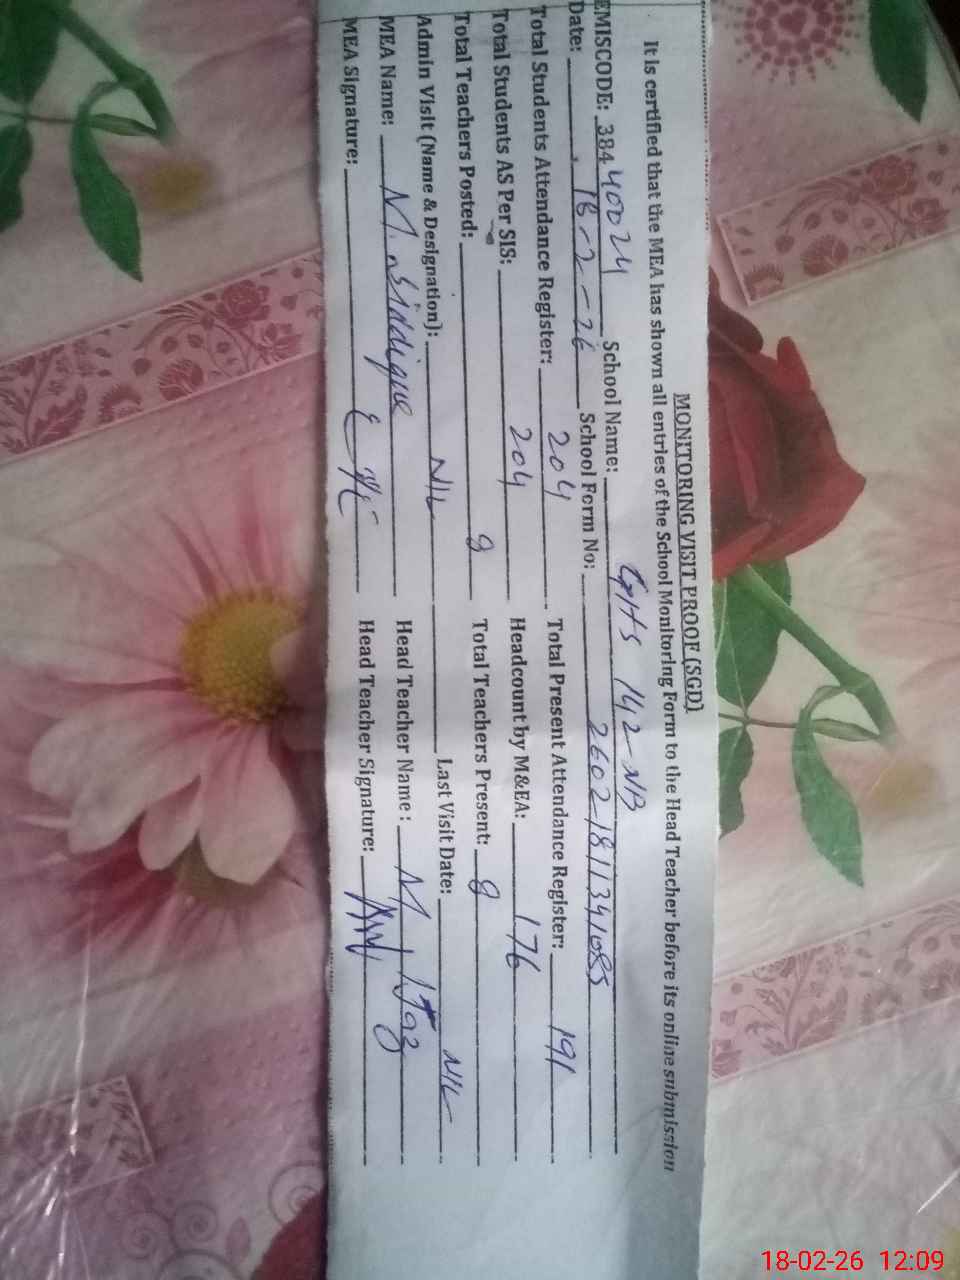 MONITORING VISIT PROOF (SGD)
It is certified that the MEA has shown all entries of the School Monitoring Form to the Head Teacher before its online submission
EMISCODE: 38440024 School Name: GHS 142-NB
Date: 18-2-26 School Form No: 26021811341085
Total Students Attendance Register: 204 Total Present Attendance Register: 191
Total Students AS Per SIS: 204 Headcount by M&EA: 176
Total Teachers Posted: 8 Total Teachers Present: 8
Admin Visit (Name & Designation): NIL Last Visit Date: NIL
MEA Name: M. Siddique Head Teacher Name: M
MEA Signature: Head Teacher Signature:
18-02-26 12:09